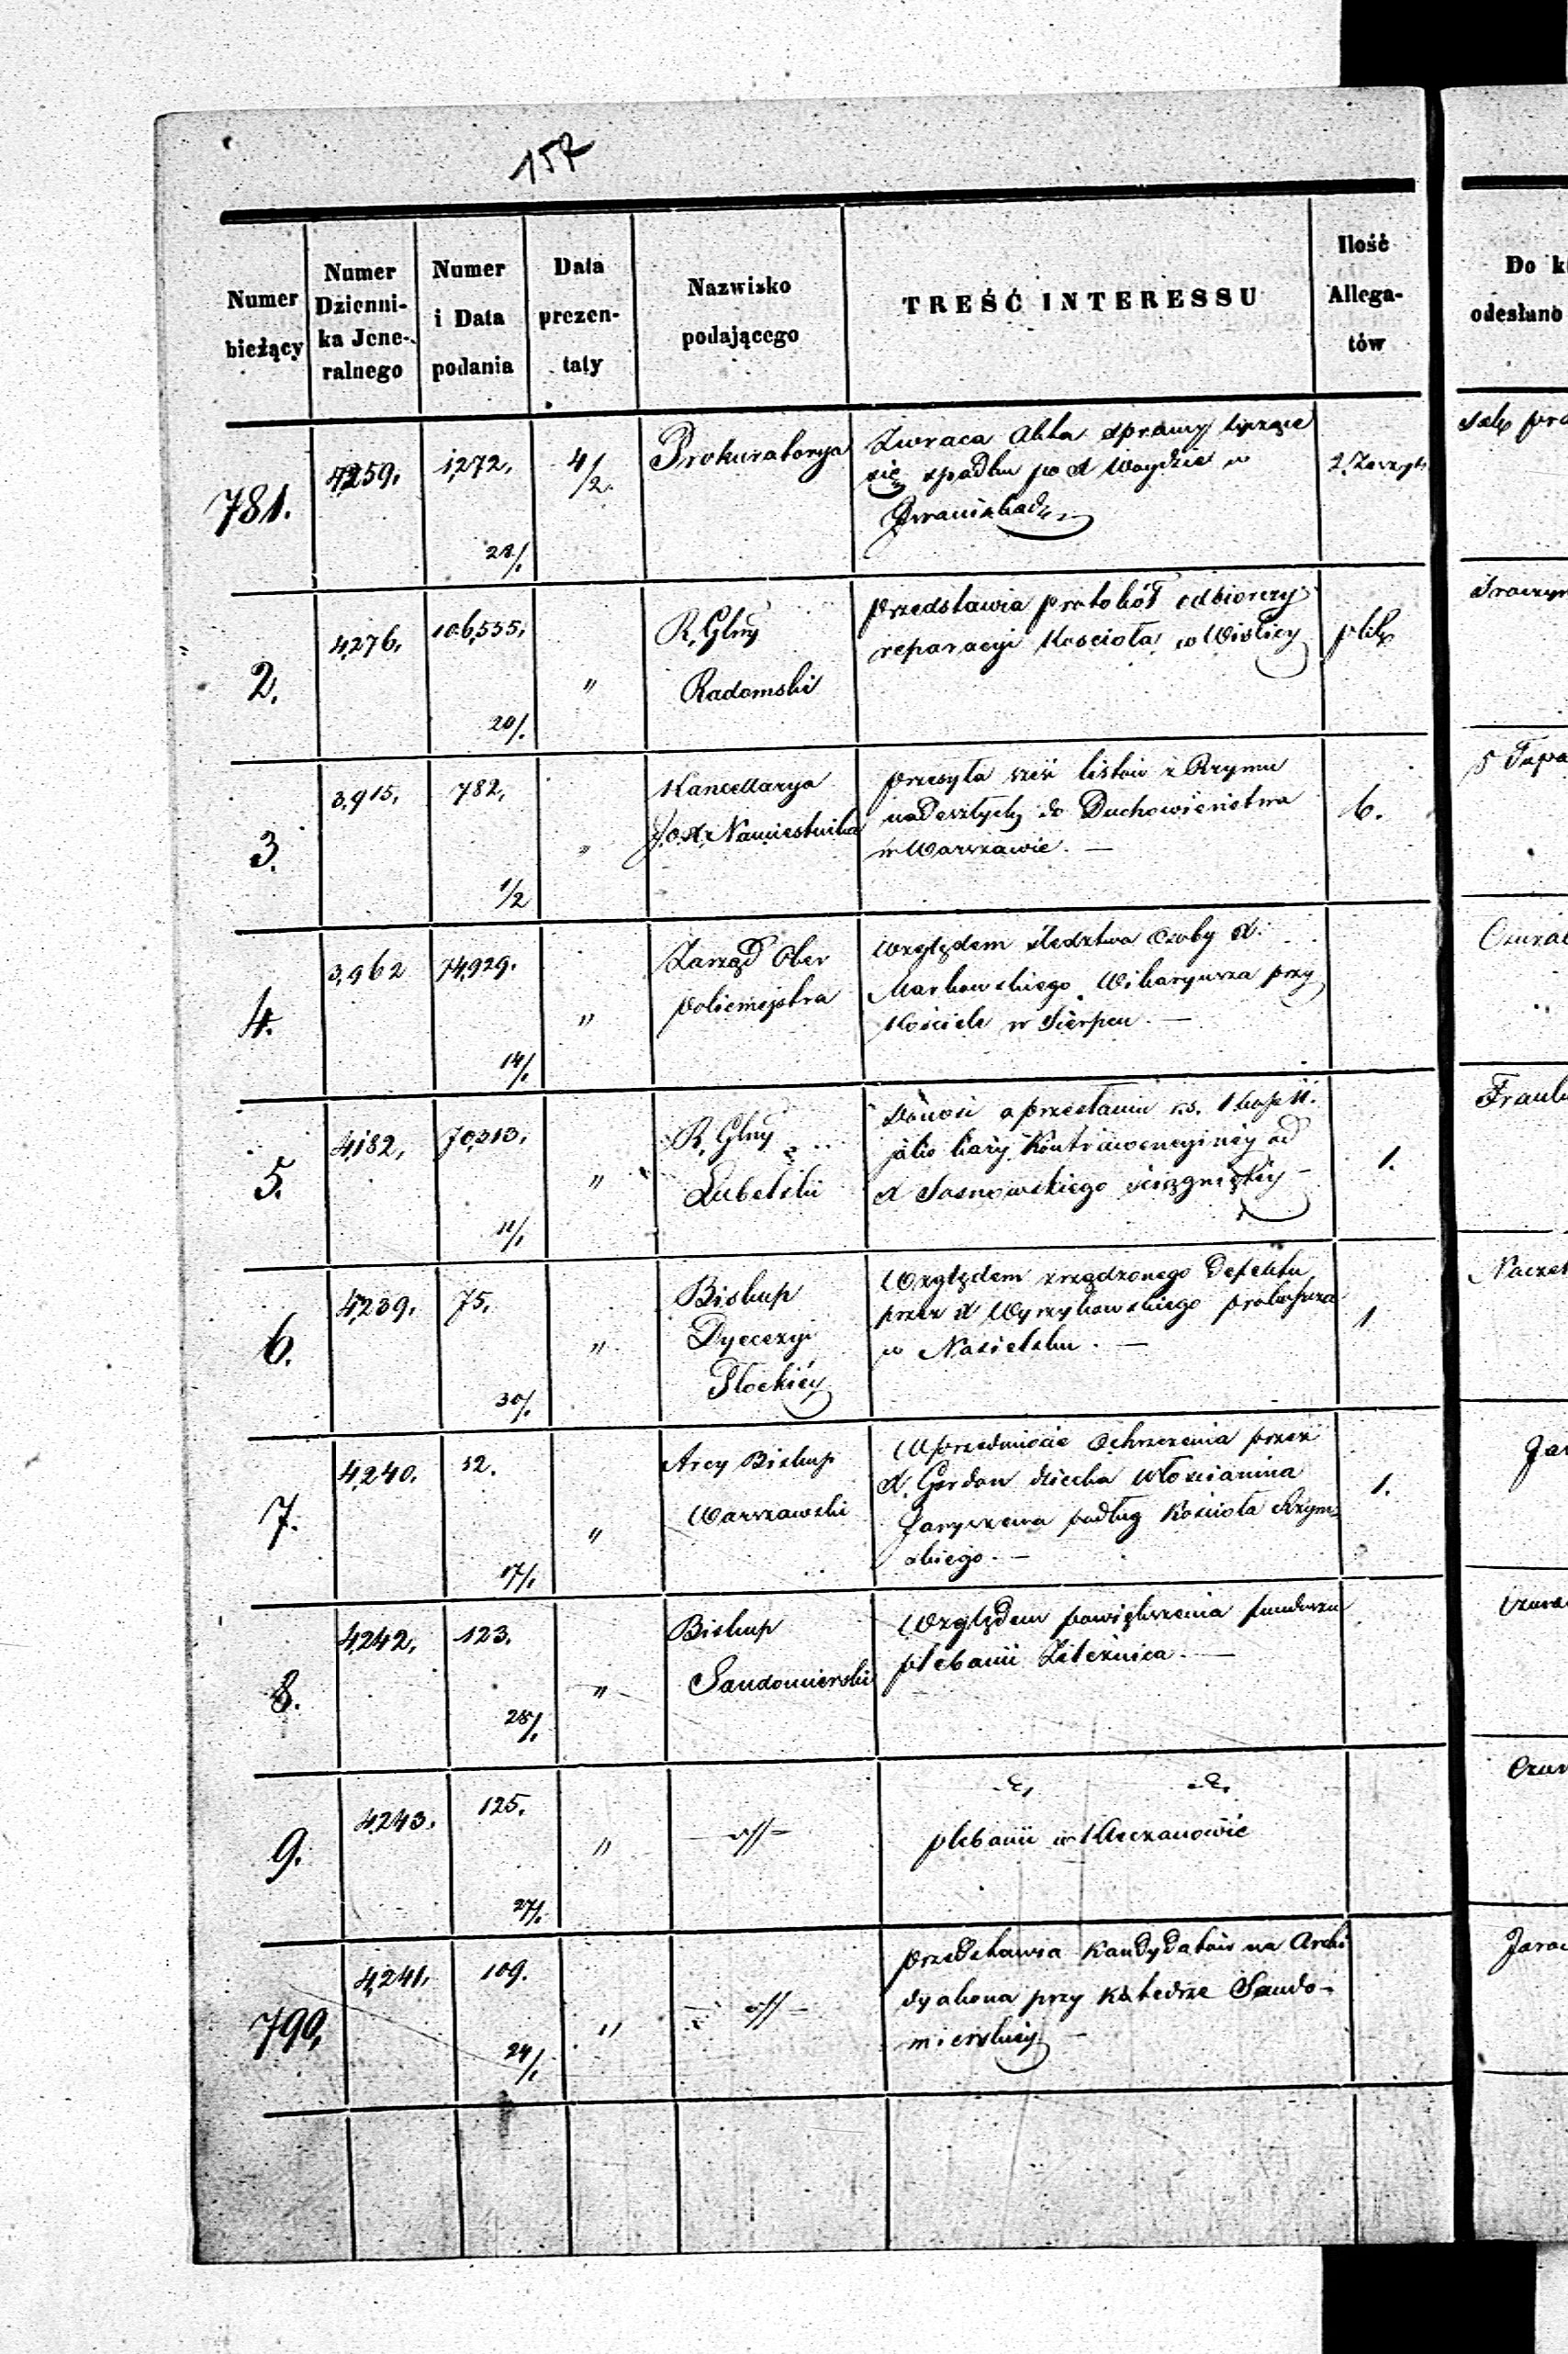 157
Numer bieżący
Numer Dzienni-
ka Jene-
ralnego
Numer
i Data
podania
Data
prezen-
taty
Nazwisko
podającego
TREŚĆ INTERESSU
Ilość
Allega-
tów
Do
odesłano
781. 4259. 1272. 28/1 4/2. Prokuratorya Zwraca Akta sprawy tyczące
się spadku po X Woydzie w
2 Zeszyty
2. 4,276. 106,555. 20/1. " R. Glny
Radomski
przedstawia protokół odbiorczy
reparacyi Kościoła w Wiślicy
plik
3. 3,915. 782. 1/2 " Kancellarya
J.O.X. Namiestnika
przesyła sześć listów z Rzymu
nadeszłych do Duchowieństwa
w Warszawie. —
6.
4. 3,962 74,929. 14/1. " Zarząd Ober
policmejstra
względem śledztwa osoby X.
Markowskiego Wikaryusza przy
Kościele w Sierpcu. —
5. 4,182, 70,313. 11/1 " R. Glny
Lubelski
Donosi o przesłaniu rs. 1 kop
jako kary Kontrawencyinéy od
X Sosnowskiego ściągniętéy —
1.
6. 4,239. 75. 30/1. " Biskup
Dyecezyi
Płockiéy
Względem zrządzonego Defektu
przez X Wyrzykowskiego proboszcza
w Nasielsku. —
1
7. 4,240. 12. 17/1. " Arcy Biskup
Warszawski
W przedmiocie Ochrzczenia przez
X. Gordon dziecka włościanina
podług Kościoła Rzym-
skiego. —
1.
8. 4,242. 123. 28/1. " Biskup
Sandomierski
Względem powiększenia funduszu
plebanii —
9. 4,243. 125. 27/1. "
plebanii w Kleczanowie
790, 4,241. 109. 24/1. "
przedstawia Kandydatów na Archi
dyakona przy Katedrze Sando-
mierskiéy —